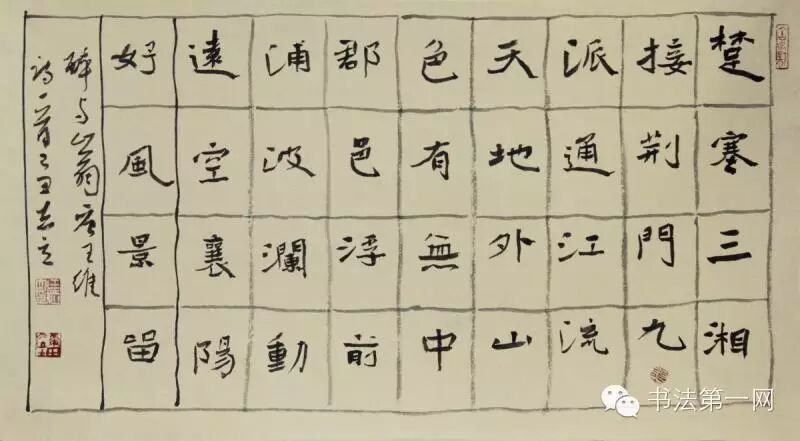 楚塞三湘
接荆門九
派通江流
天地外山
色有無中
郡邑浮前
浦波瀾動
遠空襄陽
好風景留
醉与山翁唐王維
詩一首己丑
书法第一网